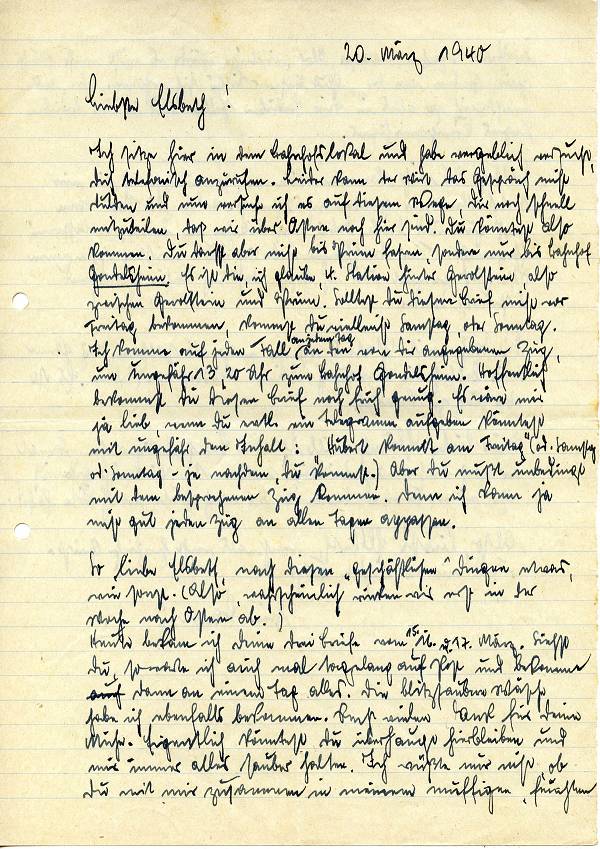 20. März 1940
Liebste Elsbeth!
Ich sitze hier in dem Bahnhofslokal und habe vergeblich versucht,
dich telefonisch anzurufen. Leider kann der Wirt das Gespräch nicht
dulden und nun versuche ich es auf diesem Wege dir noch schnell
mitzuteilen, daß wir über Ostern noch hier sind. Du könntest also
kommen. Du darfst aber nicht bis Prüm fahren, sondern nur bis Bahnhof
Gondelsheim. Es ist die, ich glaube, 4. Station hinter Gerolstein also
zwischen Gerolstein und Prüm. Solltest du diesen Brief nicht vor
Freitag bekommen, kommst du vielleicht Samstag oder Sonntag.
Ich komme auf jeden Fall an jedem Tag an den von dir angegebenen Zug,
um ungefähr 13,25 Uhr zum Bahnhof Gondelsheim. Hoffentlich
bekommst du diesen Brief noch früh genug. Es wäre mir
ja lieb, wenn du ein Telegramm aufgeben könntest
mit ungefähr dem Inhalt: Hubert kommt am Freitag" (od. Samstag
od. Sonntag - je nachdem, du kommst.) Aber du mußt unbedingt
mit dem besprochenen Zug kommen. Denn ich kann ja
nicht gut jeden Zug an allen Tagen abpassen.
So liebe Elsbeth, nach diesen „geschäftlichen" Dingen etwas,
wie sonst. (Also, wahrscheinlich rücken wir erst in der
Woche nach Ostern ab.)
Heute bekam ich deine drei Briefe vom 15. 16. u. 17. März. Siehst
du, so warte ich auch mal tagelang auf Post und bekomme
auf dann an einem Tag alles. Die blitzsaubere Wäsche
habe ich ebenfalls bekommen. Recht vielen Dank für deine
Mühe. Eigentlich könntest du überhaupt hierbleiben und
mir immer alles sauber halten. Ich wüßte nur nicht, ob
du mit mir zusammen in meinem muffigen, feuchten